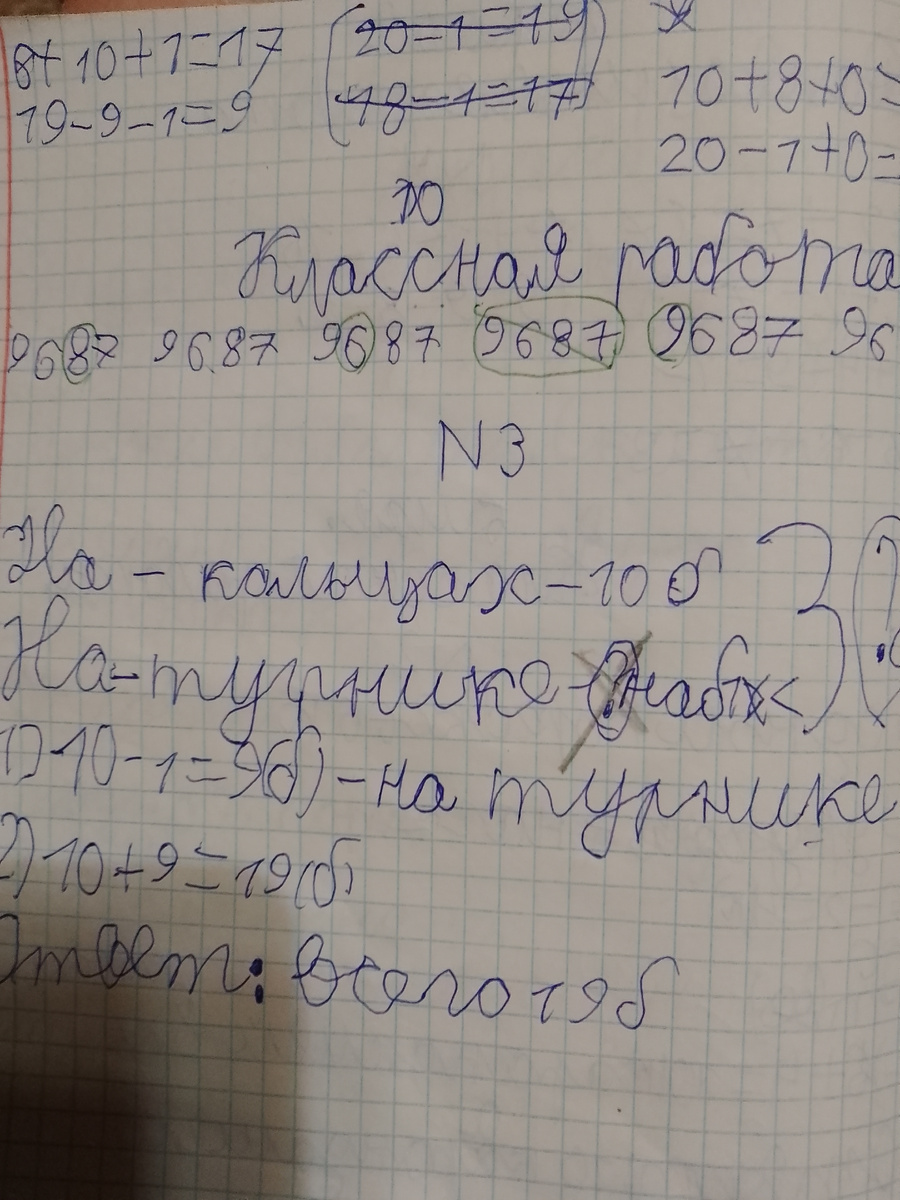 8+10+1=17 20-1=19
19-9-1=9 18-1=17 10+8+0=
20-1+0=
10
Классная работа
9687 9687 9687 9687 9687 96
N3
На - кольцах - 10 б
На - турнике - ? на б <
1) 10-1=9(б) - на турнике
2) 10+9=19(б)
Ответ: всего 19 б